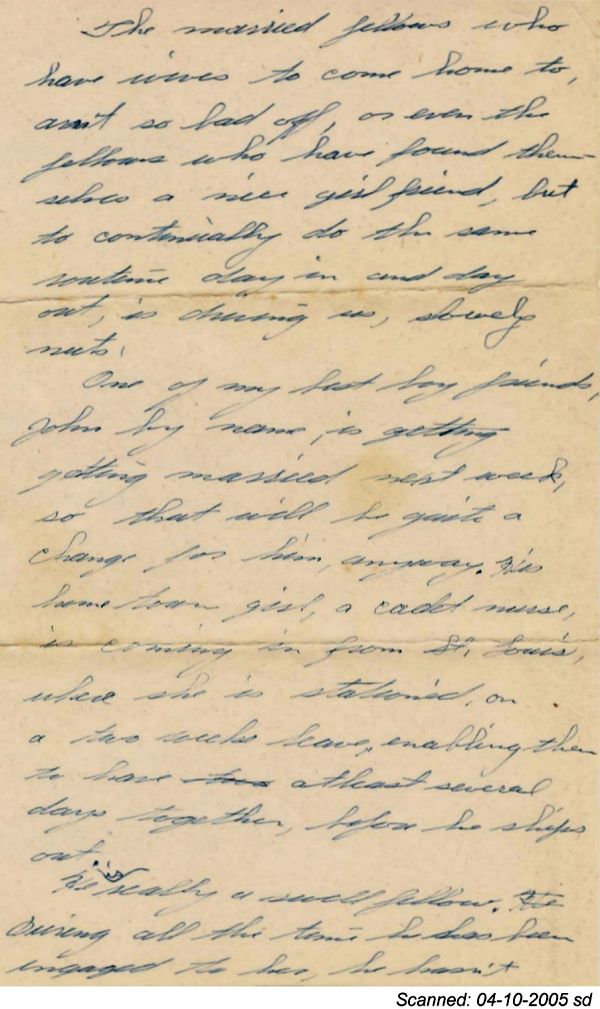 The married fellows who
have wives to come home to,
arn't so bad off, or even the
fellows who have found them-
selves a nice girl friend, but
to continually do the same
routine day in and day
out, is driving us, slowely
nuts.
One of my best boy friends,
John by name, is getting
getting married next week,
so that will be quite a
change for him, anyway. His
home town girl, a cadet nurse,
is coming in from St. Louis,
where she is stationed, on
a two weeks leave, enabling them
to have two atleast several
days together, before he ships
out.
He is really a swell fellow. He
During all the time he has been
engaged to her, he hasn't
Scanned: 04-10-2005 sd